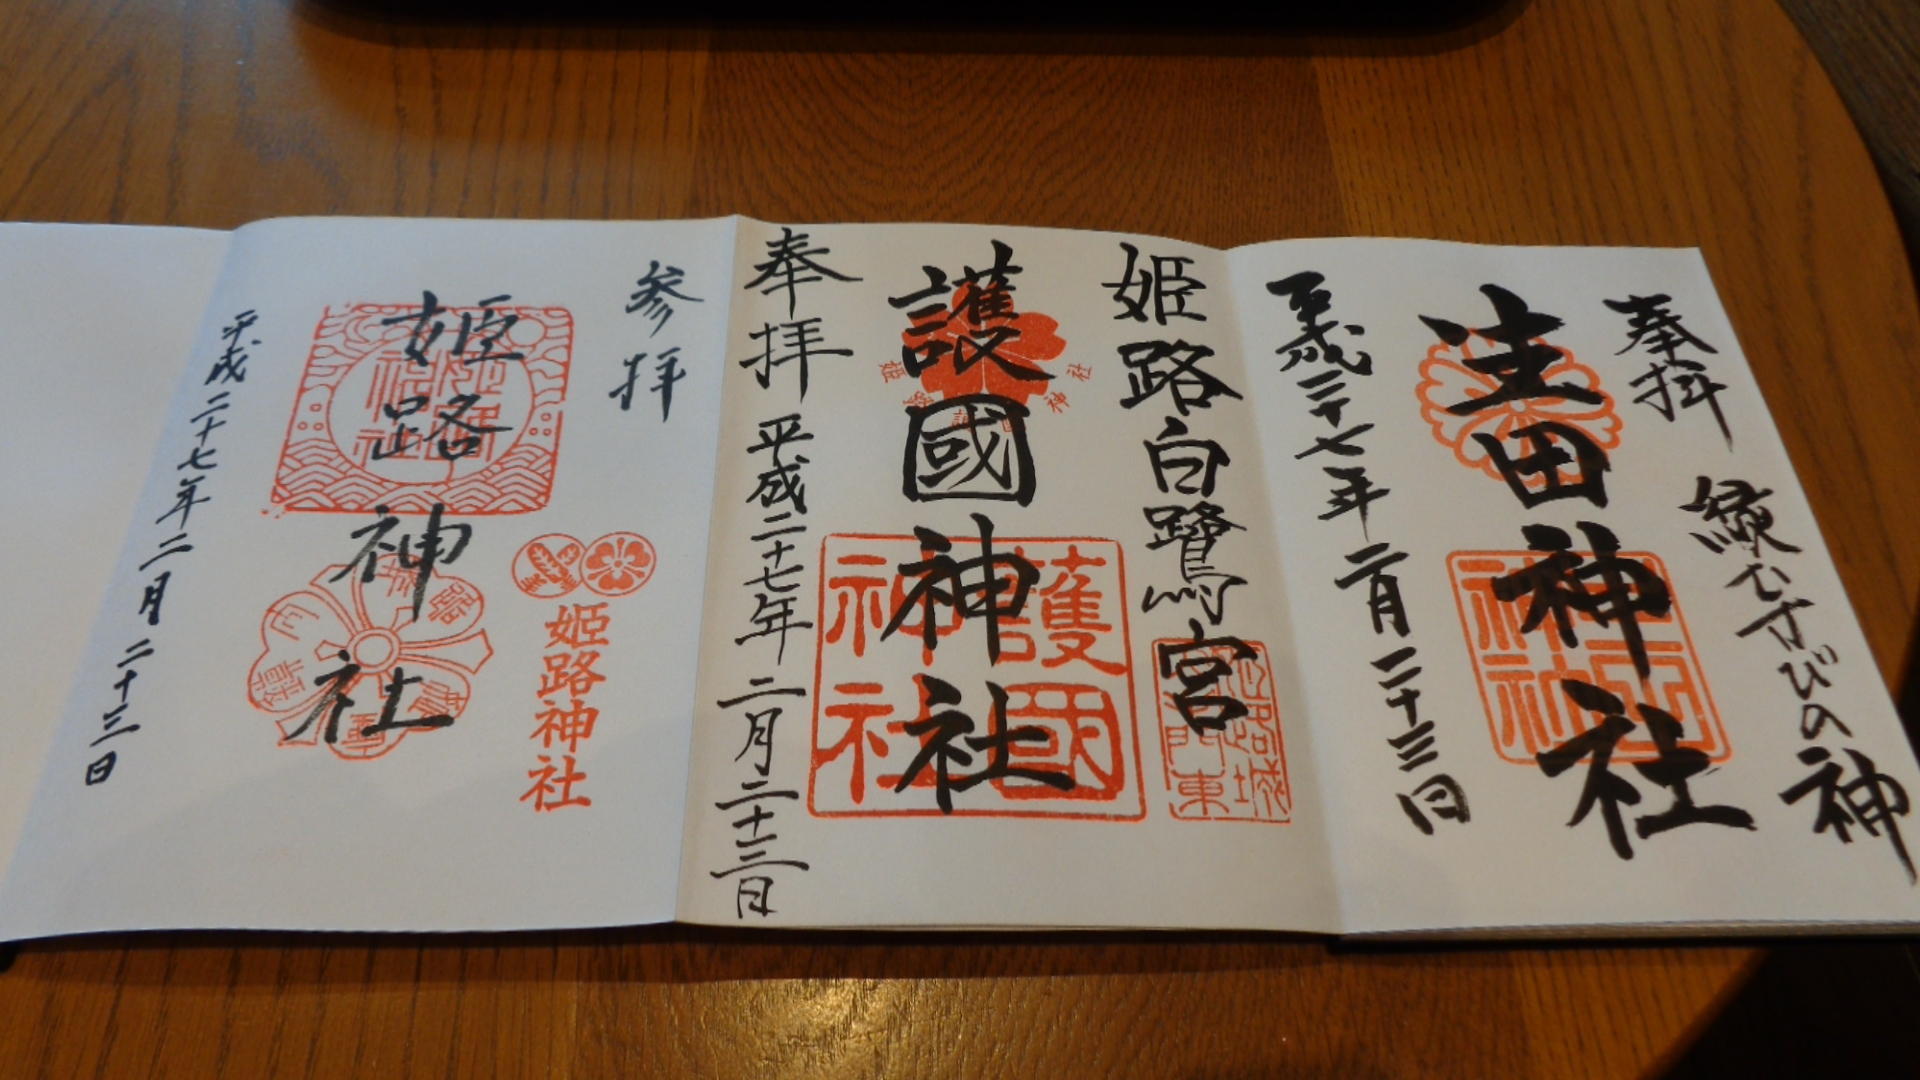 奉拝
縁むすびの神
生田神社
平成二十七年二月二十三日
姫路白鷺宮
護國神社
護國
神社
奉拝
平成二十七年二月二十三日
参拝
姫路神社
姫路神社
平成二十七年二月二十三日